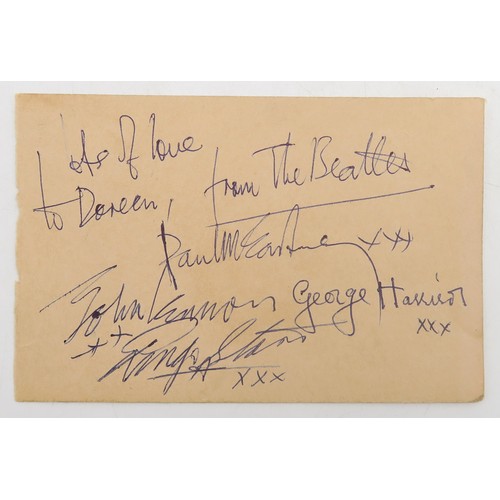 Lots of love
to Doreen, from The Beatles
Paul McCartney xxx
John Lennon George Harrison
xx Ringo Starr xxx
xxx